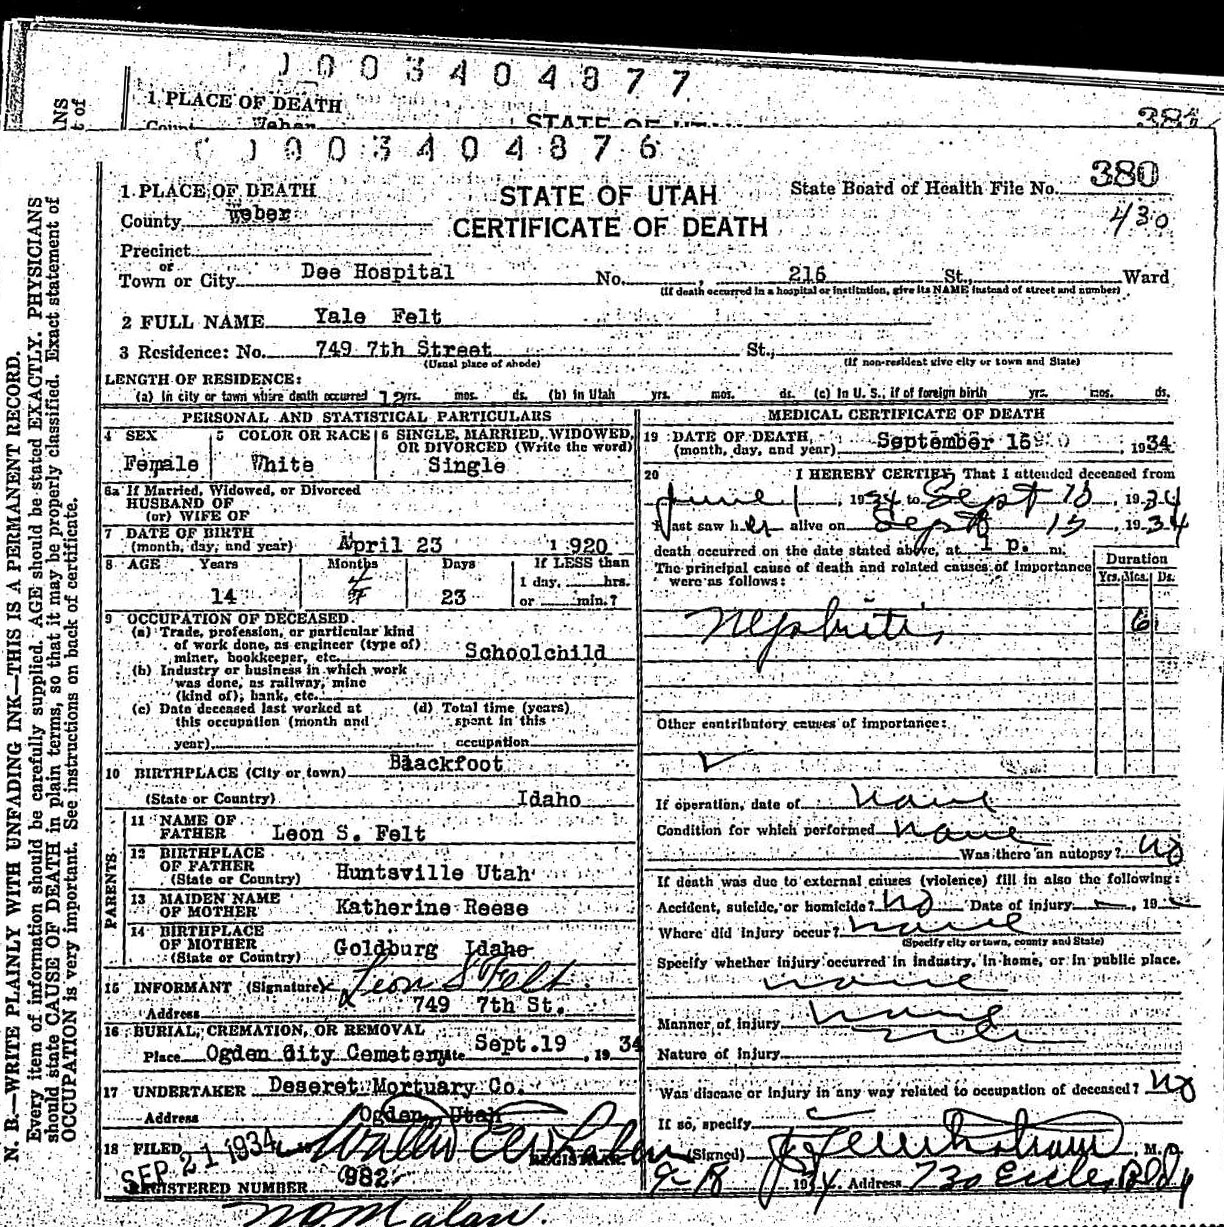 0003404877
1 PLACE OF DEATH
County Weber
STATE OF UTAH
0003404876
1 PLACE OF DEATH
County Weber
Precinct
or
Town or City Dee Hospital No. 216 St., Ward
(If death occurred in a hospital or institution, give its NAME instead of street and number)
STATE OF UTAH
CERTIFICATE OF DEATH
State Board of Health File No. 380
430
2 FULL NAME Yale Felt
3 Residence: No. 749 7th Street St.,
(Usual place of abode) (If non-resident give city or town and State)
LENGTH OF RESIDENCE:
(a) In city or town where death occurred 12 yrs. mos. ds. (b) In Utah yrs. mos. ds. (c) In U. S., if of foreign birth yrs. mos. ds.
PERSONAL AND STATISTICAL PARTICULARS
4 SEX Female
5 COLOR OR RACE White
6 SINGLE, MARRIED, WIDOWED, OR DIVORCED (Write the word) Single
6a If Married, Widowed, or Divorced
HUSBAND OF
(or) WIFE OF
7 DATE OF BIRTH
(month, day, and year) April 23 1920
8 AGE Years 14 Months 4 Days 23 If LESS than
1 day, hrs.
or min.?
9 OCCUPATION OF DECEASED.
(a) Trade, profession, or particular kind
of work done, as engineer (type of)
miner, bookkeeper, etc. Schoolchild
(b) Industry or business in which work
was done, as railway, mine
(kind of), bank, etc.
(c) Date deceased last worked at
this occupation (month and
year)
(d) Total time (years)
spent in this
occupation
10 BIRTHPLACE (City or town) Blackfoot
(State or Country) Idaho
PARENTS
11 NAME OF
FATHER Leon S. Felt
12 BIRTHPLACE
OF FATHER
(State or Country) Huntsville Utah
13 MAIDEN NAME
OF MOTHER Katherine Reese
14 BIRTHPLACE
OF MOTHER
(State or Country) Goldburg Idaho
15 INFORMANT (Signature) Leon S Felt
Address 749 7th St.
16 BURIAL, CREMATION, OR REMOVAL
Place Ogden City Cemetery Date Sept.19, 1934
17 UNDERTAKER Deseret Mortuary Co.
Address Ogden, Utah
18 FILED SEP 21 1934
REGISTRAR.
REGISTERED NUMBER (982
MEDICAL CERTIFICATE OF DEATH
19 DATE OF DEATH,
(month, day, and year) September 15 1934
20 I HEREBY CERTIFY, That I attended deceased from
June 1, 1934 to Sept 15, 1934
I last saw her alive on Sept 15, 1934
death occurred on the date stated above, at 1 p. m.
The principal cause of death and related causes of importance
were as follows:
Duration
Yrs. Mos. Ds.
Nephritis 6
Other contributory causes of importance:
If operation, date of none
Condition for which performed none
Was there an autopsy? No
If death was due to external causes (violence) fill in also the following:
Accident, suicide, or homicide? No Date of injury, 19
Where did injury occur? none
(Specify city or town, county and State)
Specify whether injury occurred in industry, in home, or in public place.
none
Manner of injury none
Nature of injury
Was disease or injury in any way related to occupation of deceased? No
If so, specify
(Signed) M. D.
9-18 1934 Address 730 Eccles Bldg
N. B.—WRITE PLAINLY WITH UNFADING INK—THIS IS A PERMANENT RECORD.
Every item of information should be carefully supplied. AGE should be stated EXACTLY. PHYSICIANS
should state CAUSE OF DEATH in plain terms, so that it may be properly classified. Exact statement of
OCCUPATION is very important. See instructions on back of certificate.